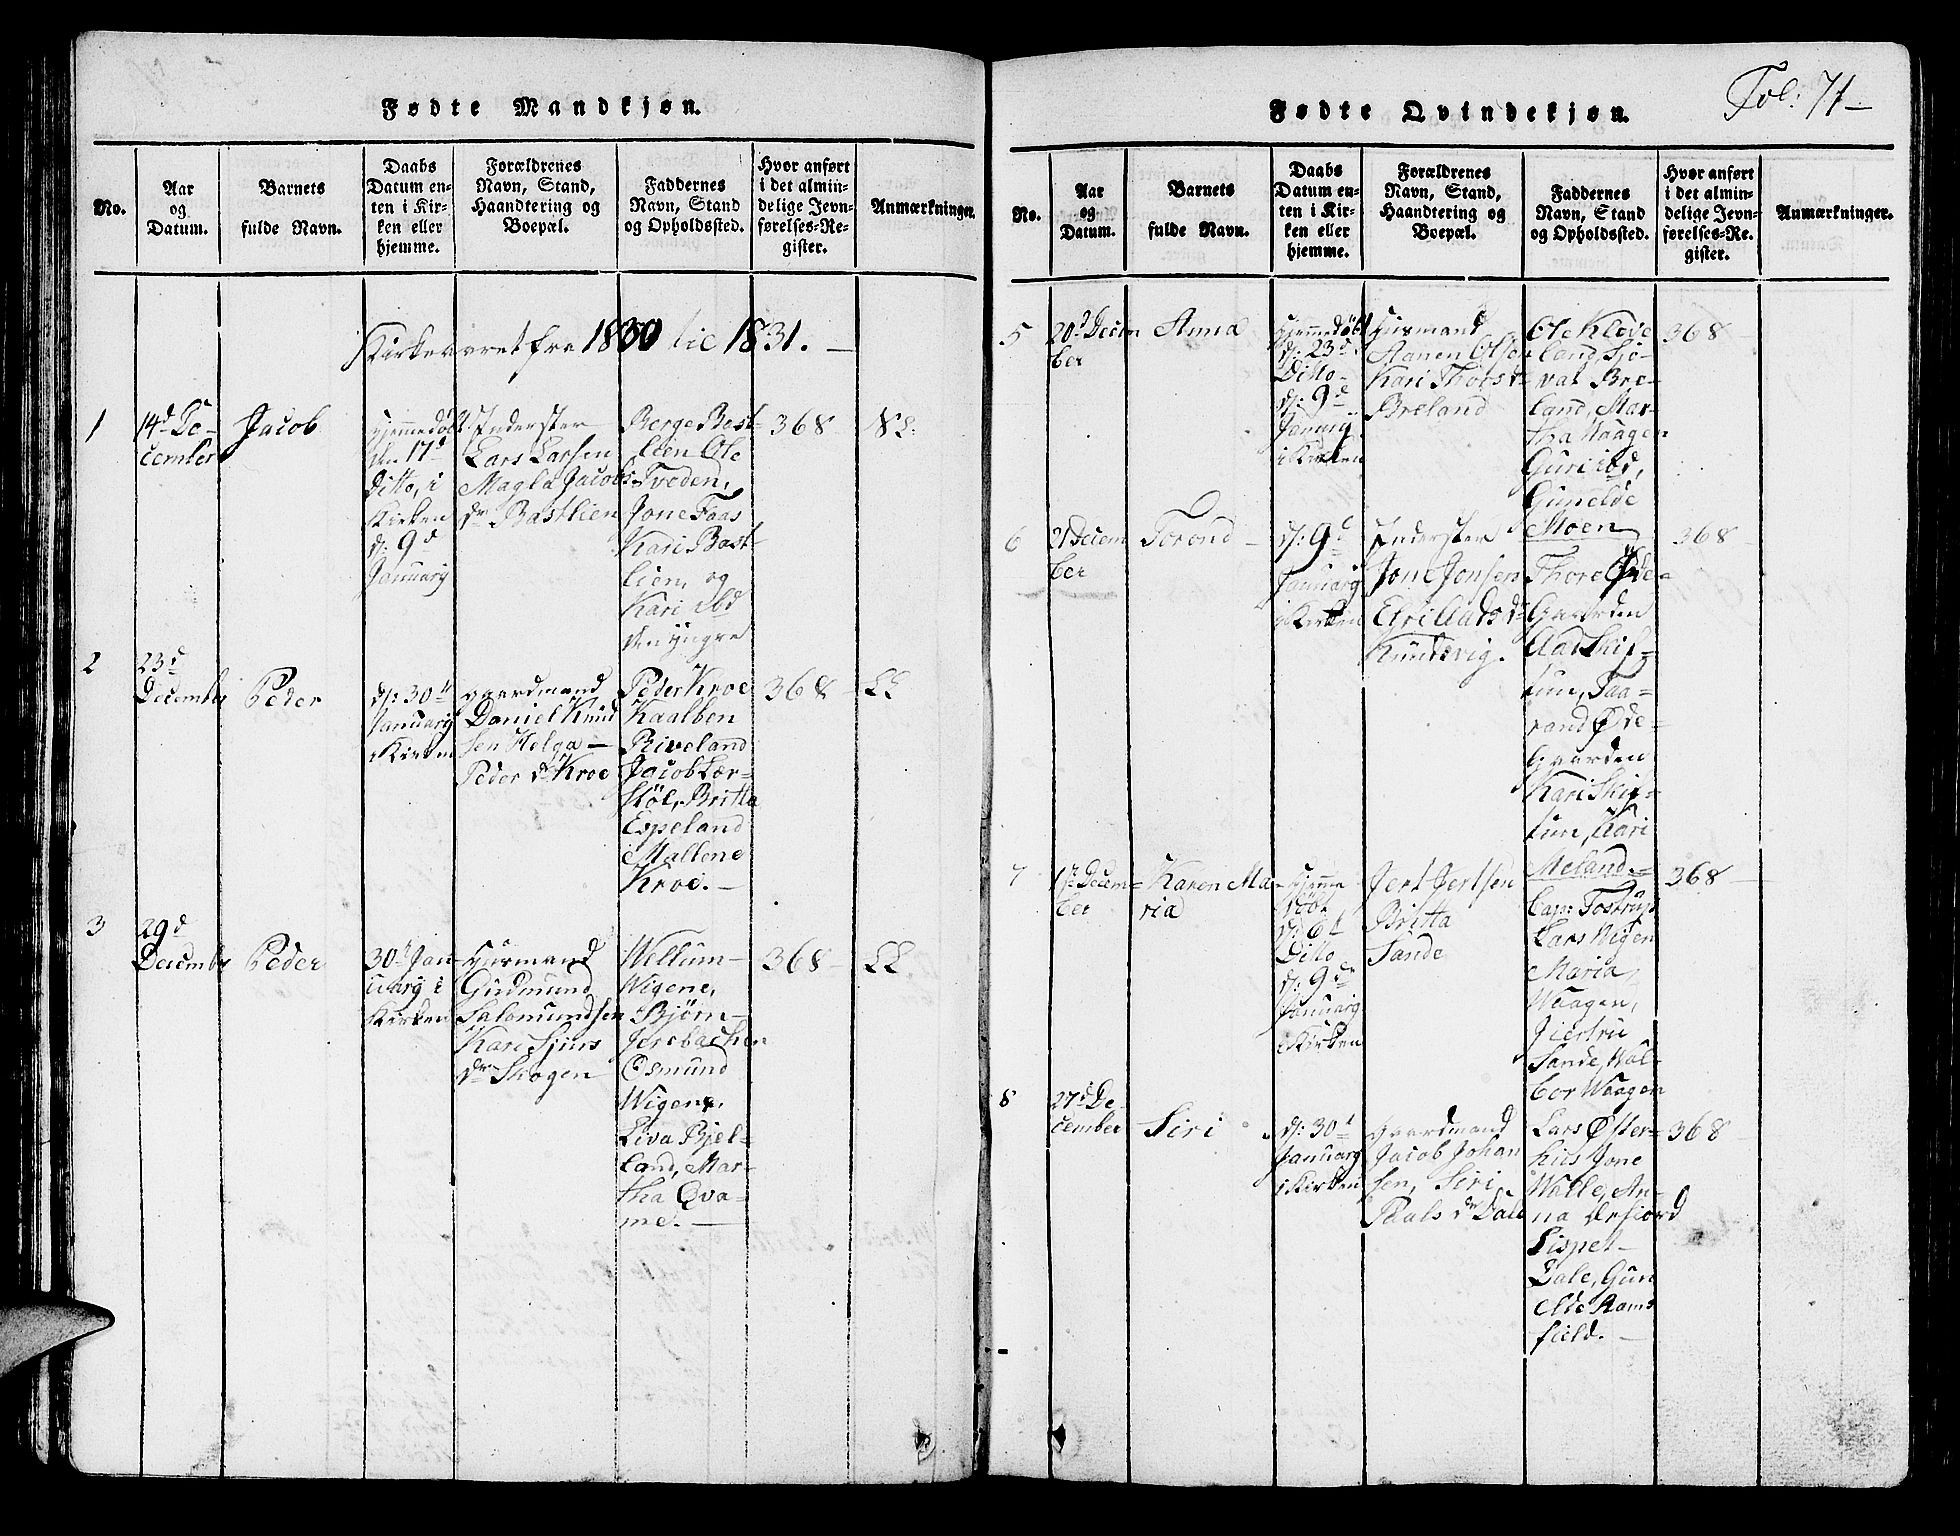 Fødte Mandkjøn.
No.
Aar
og
Datum.
Barnets
fulde Navn.
Daabs
Datum en-
ten i Kir-
ken eller
hjemme.
Forældrenes
Navn, Stand,
Haandtering og
Boepæl.
Faddernes
Navn, Stand
og Opholdssted.
Hvor anført
i det almin-
delige Jevn-
førelses-Re-
gister.
Anmærkninger.
Kirkeaaret fra 1830 til 1831. —
1
14d De-
cember
Jacob
Hjemmedöbt
den 17d
Ditto, i
Kirken
d: 9d
Januarij
Inderster
Lars Larsen
Magla Jacobs
dr Bastlien
Berge Bast-
lien Ole
Tveden,
Jone Faas
Kari Bast-
lien, og
Kari ibd
den yngre
368
2
23d
December
Peder
d: 30te
Januarij
i Kirken
Gaardmand
Daniel Knud
sen Helga —
Peder dr Kroe
Peder Kroe
Kaalben
Riveland
Jacob Lær-
stöl, Britta
Espeland
Mallene
Kroe. —
368 —
LL
3
29d
December
Peder
30te Jan-
uarij i
Kirken
Husmand
Gudmund
Salomundsen
Kari Sjurs
dr Skogen
Wellum —
Wigene,
Björn —
Jerebachen
Osmund
Wigene,
Liva Bjel-
land, Mar-
tha Qva-
me. —
368 —
LL
Fol: 71 —
Fødte Qvindekjøn.
No.
Aar
og
Datum.
Barnets
fulde Navn.
Daabs
Datum en-
ten i Kir-
ken eller
hjemme.
Forældrenes
Navn, Stand,
Haandtering og
Boepæl.
Faddernes
Navn, Stand
og Opholdssted.
Hvor anført
i det almin-
delige Jevn-
førelses-Re-
gister.
Anmærkninger.
5
20d Decem
ber
Anna
Hjemmedöbt
d: 23d
Ditto
d: 9de
Januarij
i Kirken
Husmand
Aanen Olsen
Kari Thors dr
Breland
Ole Klöve
land, Sjo-
vat Bre-
land, Mar-
tha Waagen
Guri ibd,
Gunelde
Moen
368
6
21 Decem
ber
Torond —
d: 9d
Januarij
i Kirken
Inderster
Jone Jonsen
Elsi Aads dr
Kundevig.
Thore Øde-
Gaarden
Aad Skif-
tun, Taa-
rand Øde-
gaarden
Kari Skif-
tun, Kari
Meland. —
368
7
1ste Decem-
ber
Karen Ma-
ria
Hjemme
döbt
d: 6t
Ditto
d: 9de
Januarij
i Kirken
Jert Jertsen
Britta
Sande
Cap: Tostrup
Lars Wigen
Maria
Waagen,
Jiertru
Sande, Wal-
bor Waagen
368 —
8
27d De-
cember
Siri
d: 30t
Januarij
i Kirken
Gaardmand
Jacob Johan
sen, Siri
Paals dr Dale
Lars Øster-
hus Jone
Walle, An-
na Ørfiord
Lispet —
Dale, Gun
elde Rams
field. —
368 —